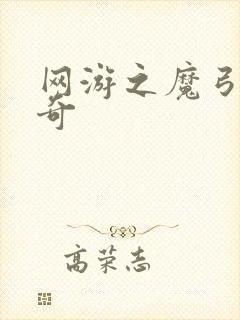 网游之魔弓
奇
高荣志